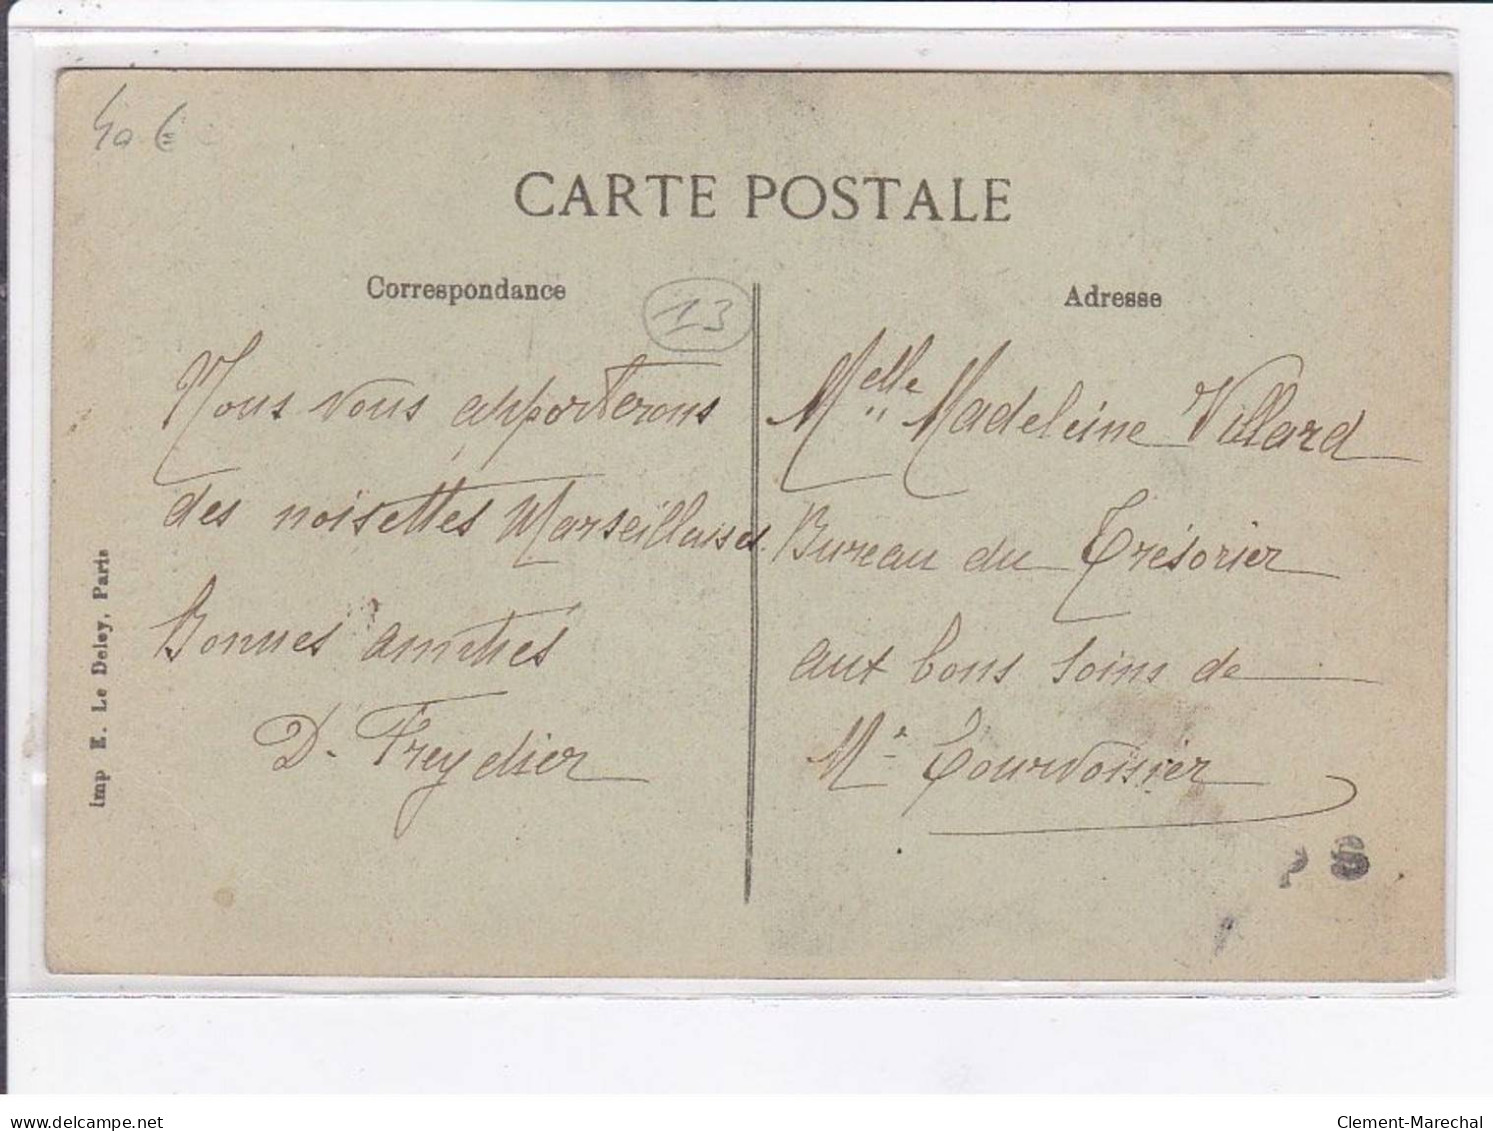 40 €
CARTE POSTALE
Correspondance
13
Adresse
Nous vous apporterons
des noisettes Marseillaises.
Bonnes amitiés
D. Freydier
Melle Madeleine Villard
Bureau du Trésorier
aux bons soins de
Mr Courvoisier
Imp E. Le Deley, Paris
www.delcampe.net
Clement-Marechal